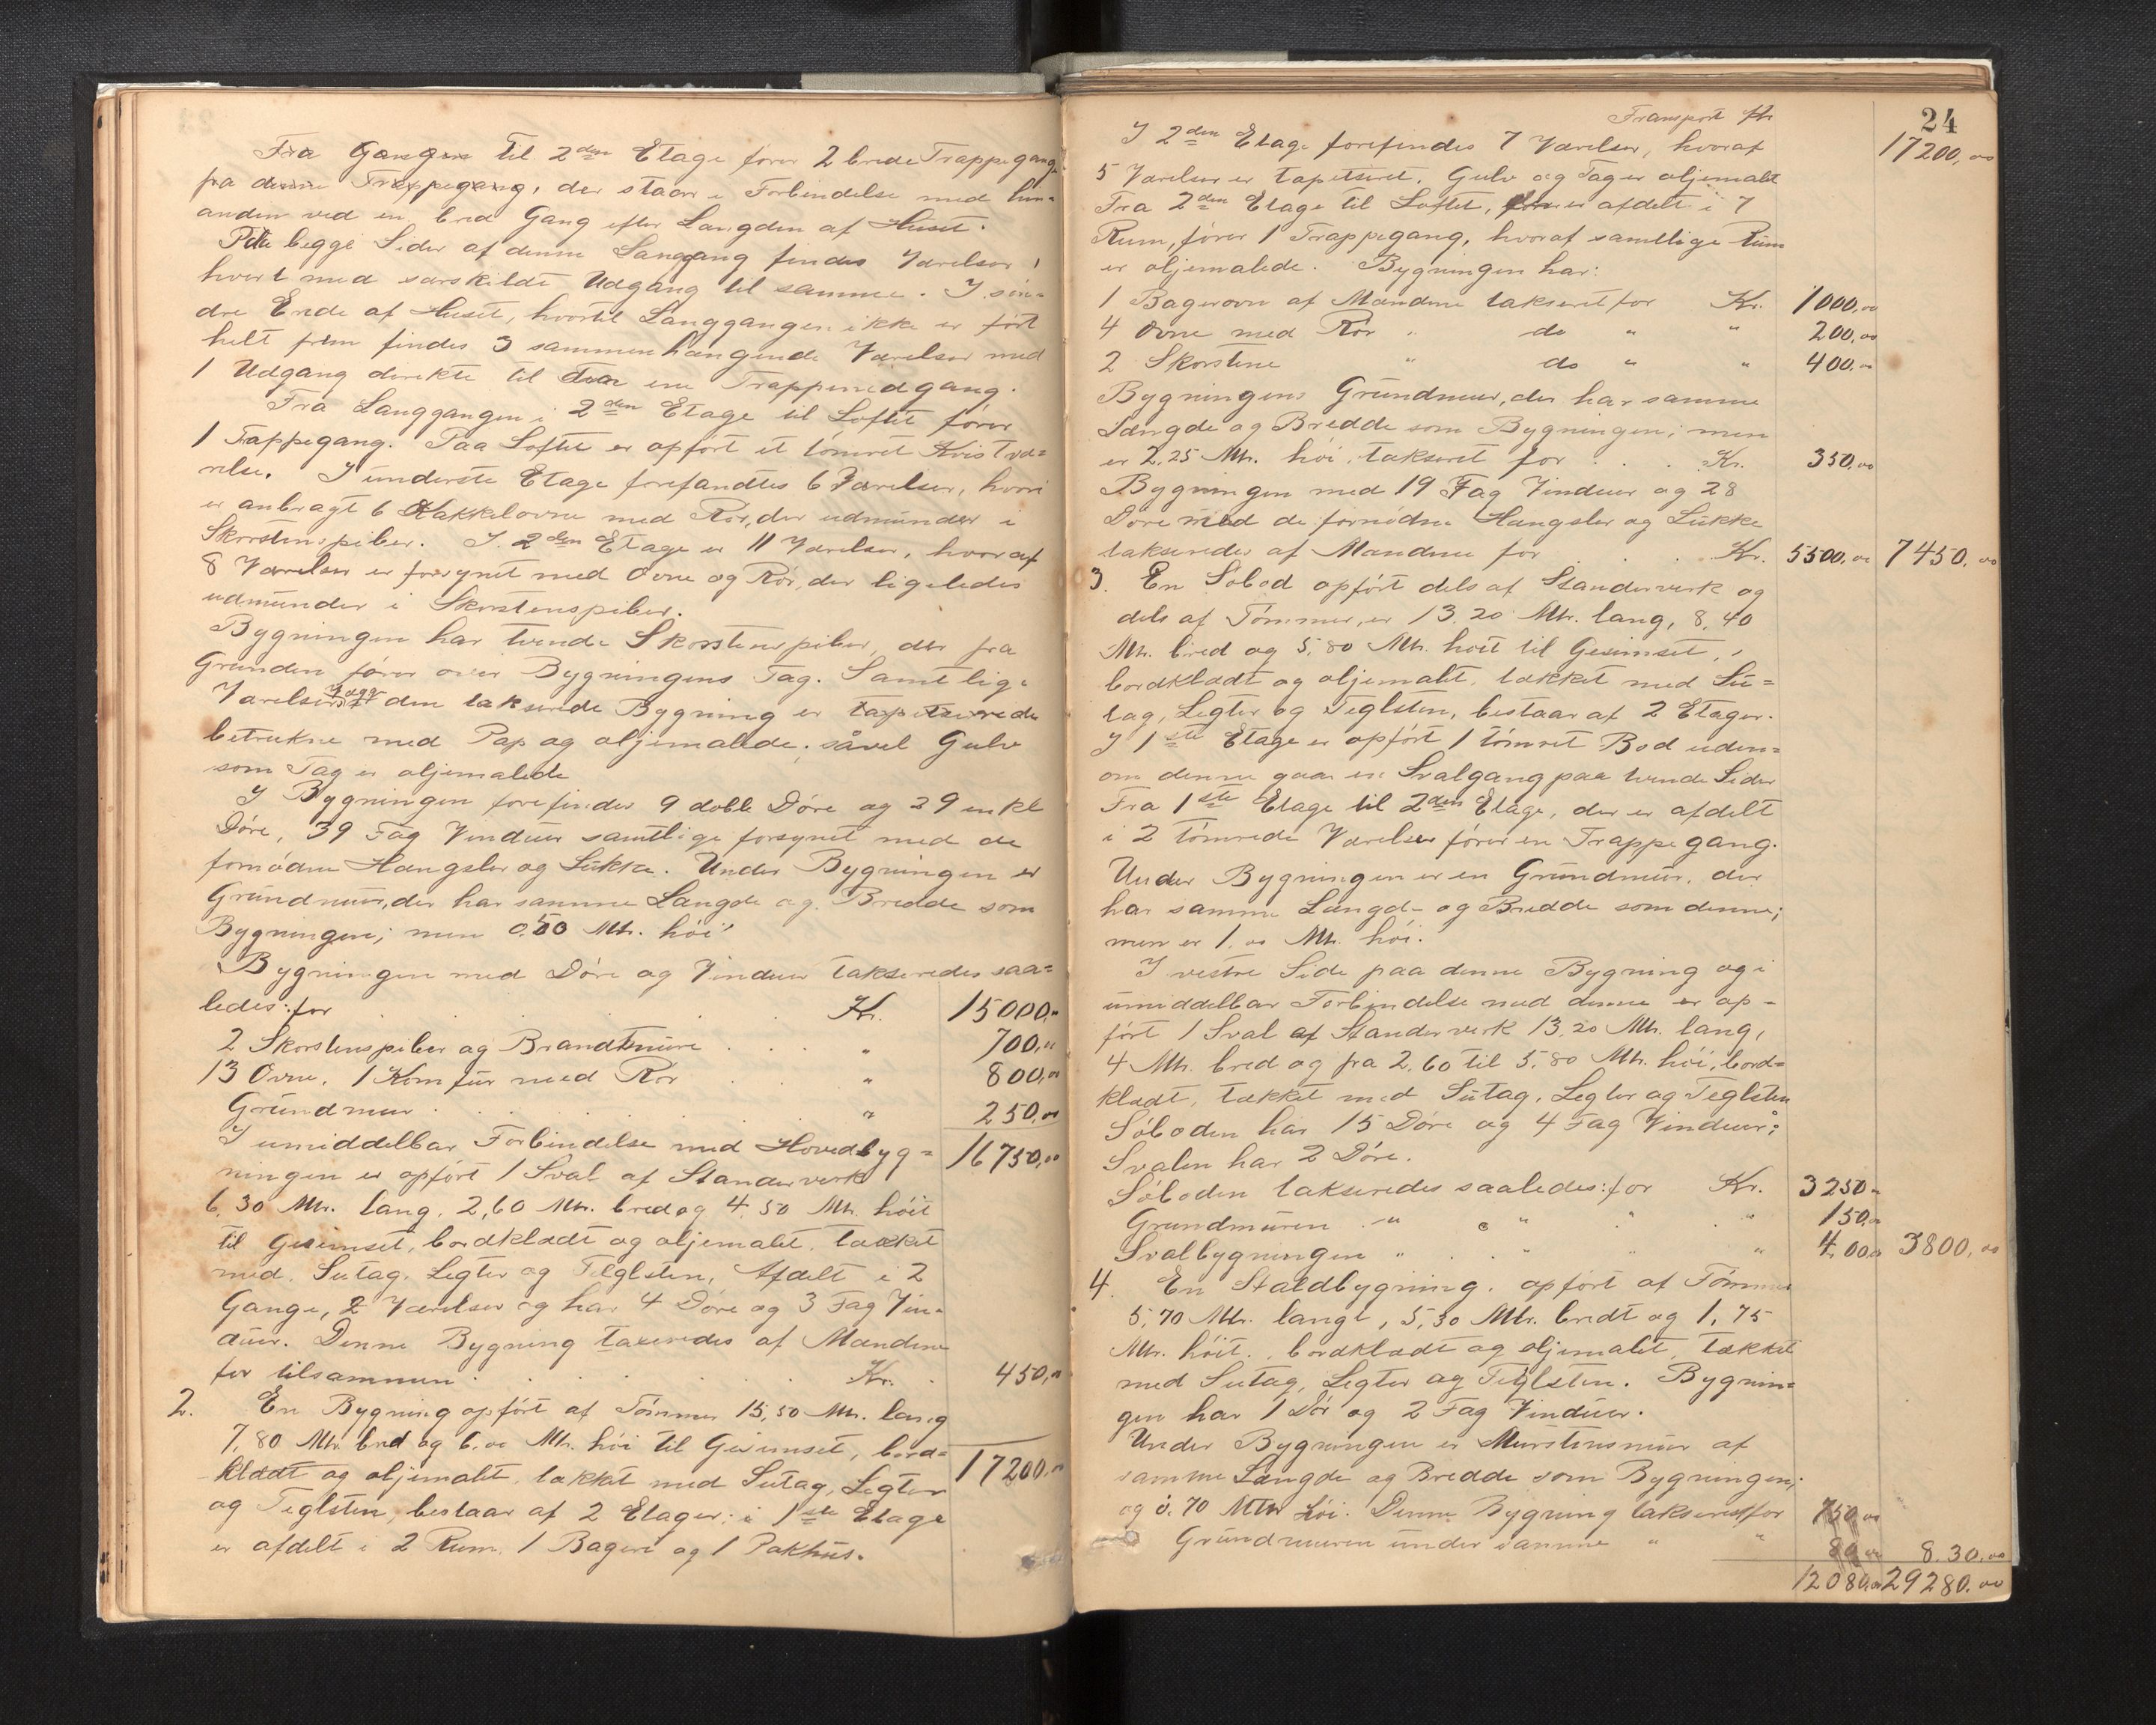 Fra Gangen til 2den Etage fører 2 brede Trappegange
fra denne Trappegang, der staar i Forbindelse med hin-
anden ved en bred Gang efter Længden af Huset.
Paa begge Sider af denne Langgang findes Værelser,
hvert med særskildt Udgang til samme. I søn-
dre Ende af Huset, hvortil Langgangen ikke er ført
helt frem findes 3 sammenhængende Værelser med
1 Udgang direkte til den ene Trappenedgang.
Fra Langgangen i 2den Etage til Loftet fører
1 Trappegang. Paa Loftet er opført et tømret Kvistvæ-
relse. I underste Etage forefandtes 6 Værelser, hvori
er anbragt 6 Kakkelovne med Rør, der udmunder i
Skorstenspiber. I 2den Etage er 11 Værelser, hvoraf
8 Værelser er forsynet med Ovne og Rør, der ligeledes
udmunder i Skorstenspiber.
Bygningen har tvende Skorstenspiber, der fra
Grunden fører over Bygningens Tag. Samtlige
Værelsers Vægge i den takserede Bygning er tapetserede
betrukne med Pap og oljemalede; såvel Gulv
som Tag er oljemalede
I Bygningen forefindes 9 doble Døre og 29 enkl
Døre, 39 Fag Vinduer samtlige forsynet med de
fornødne Hængsler og Lukke. Under Bygningen er
Grundmur, der har samme Længde og Bredde som
Bygningen; men 0.50 Mtr. høi
Bygningen med Døre og Vinduer takseredes saa-
ledes: for Kr. 15000,00
2 Skorstenspiber og Brandtmure " 700,00
13 Ovne, 1 Komfur med Rør " 800,00
Grundmur " 250,00
I umiddelbar Forbindelse med Hovedbyg- 16750,00
ningen er opført 1 Sval af Standerverk
6,30 Mtr. lang, 2,60 Mtr. bred og 4,50 Mtr. høit
til Gesimset, bordklædt og oljemalet, tækket
med Sutag, Legter og Teglsten, Afdelt i 2
Gange, 2 Værelser og har 4 Døre og 3 Fag Vin-
duer. Denne Bygning taxeredes af Mændene
for tilsammen Kr. 450,00
2. En Bygning opført af Tømmer 15,50 Mtr. lang
7,80 Mtr. bred og 6.00 Mtr. høi til Gesimset, bord-
klædt og oljemalet, tækket med Sutag, Legter 17200,00
og Teglsten, bestaar af 2 Etager; i 1ste Etage
er afdelt i 2 Rum, 1 Bageri og 1 Pakhus.
24
Transport Kr. 17200,00
I 2den Etage forefindes 7 Værelser, hvoraf
5 Værelser er tapetseret. Gulv og Tag er oljemalet
Fra 2den Etage til Loftet, er afdelt i 7
Rum, fører 1 Trappegang, hvoraf samtlige Rum
er oljemalede. Bygningen har:
1 Bagerovn af Mændene takseret for Kr. 1000,00
4 Ovne med Rør " do " " 200,00
2 Skorstene " do " " 400,00
Bygningens Grundmur, der har samme
Længde og Bredde som Bygningen; men
er 2,25 Mtr. høi, takseret for Kr. 350,00
Bygningen med 19 Fag Vinduer og 28
Døre med de fornødne Hængsler og Lukke
takseredes af Mændene for Kr. 5500,00 7450,00
3. En Søbod opført dels af Standerverk og
dels af Tømmer, er 13,20 Mtr. lang, 8,40
Mtr. bred og 5,80 Mtr. høit til Gesimset,
bordklædt og oljemalet, tækket med Su-
tag, Legter og Teglsten, bestaar af 2 Etager.
I 1ste Etage er opført 1 tømret Bod uden-
om denne gaar en Svalgang paa tvende Sider
Fra 1ste Etage til 2den Etage, der er afdelt
i 2 tømrede Værelser fører en Trappegang.
Under Bygningen er en Grundmur, der
har samme Længde og Bredde som denne;
men er 1.00 Mtr. høi.
I vestre Side paa denne Bygning og i
umiddelbar Forbindelse med denne er op-
ført 1 Sval af Standerverk 13,20 Mtr. lang,
4 Mtr. bred og fra 2,60 til 5,80 Mtr. høi, bord-
klædt, tækket med Sutag, Legter og Teglsten
Søboden har 15 Døre og 4 Fag Vinduer;
Svalen har 2 Døre.
Søboden takseredes saaledes: for Kr. 3250,00
Grundmuren " " " " 150,00
Svalbygningen " " " " 400,00 3800,00
4. En Staldbygning, opført af Tømmer
5,70 Mtr. langt, 5,30 Mtr. bredt og 1,75
Mtr. høit, bordklædt og oljemalet, tækket
med Sutag, Legter og Teglsten. Bygnin-
gen har 1 Dør og 2 Fag Vinduer.
Under Bygningen er Murstensmur af
samme Længde og Bredde som Bygningen;
og 0.70 Mtr høi. Denne Bygning takseredes for 750,00
Grundmuren under samme " " 80,00 8.30,00
12080,00 29280,00